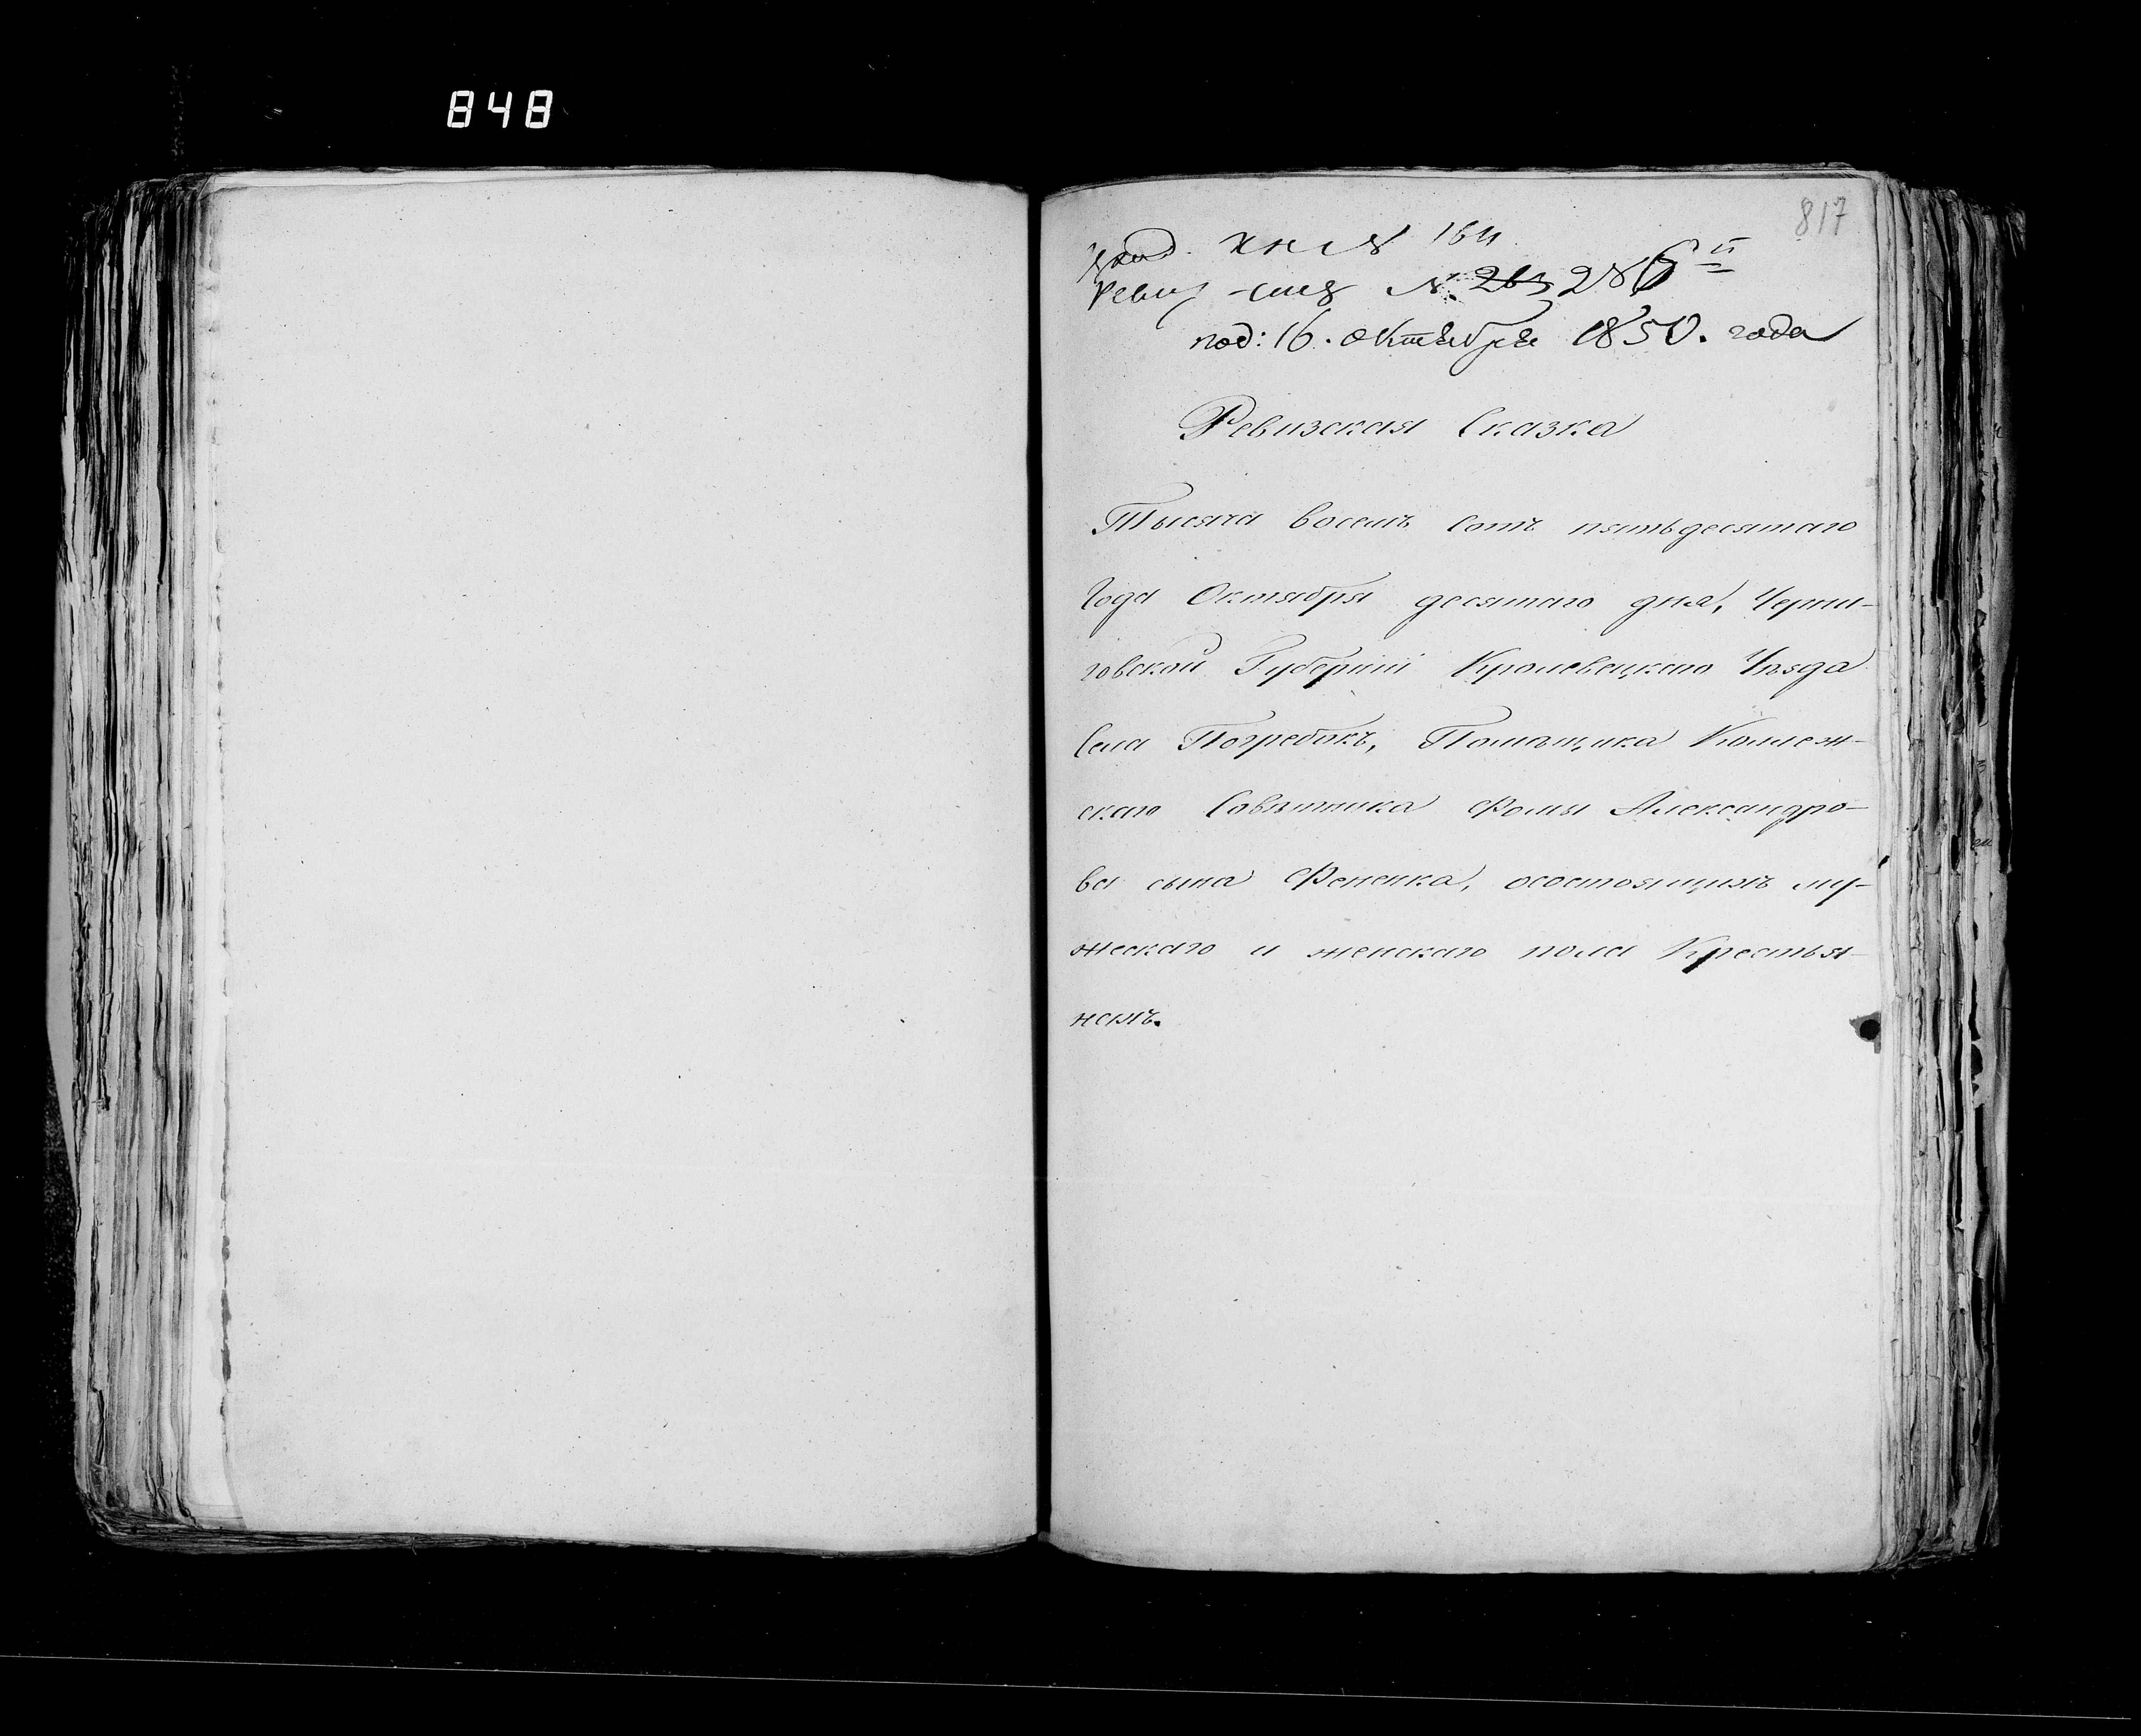 848
817
№ 286
под: 16. октября 1850. года
Ревизская Сказка
Тысяча восемъ сотъ пятьдесятаго
Года Октября десятаго дня, Черни-
говской Губерніи Кролевецкаго Уѣзда
Села Погребокъ, Помѣщика Коллеж-
скаго Совѣтника Фомы Александро-
ва сына Фененка, осостоящихъ му-
жескаго и женскаго пола Крестья-
нахъ.